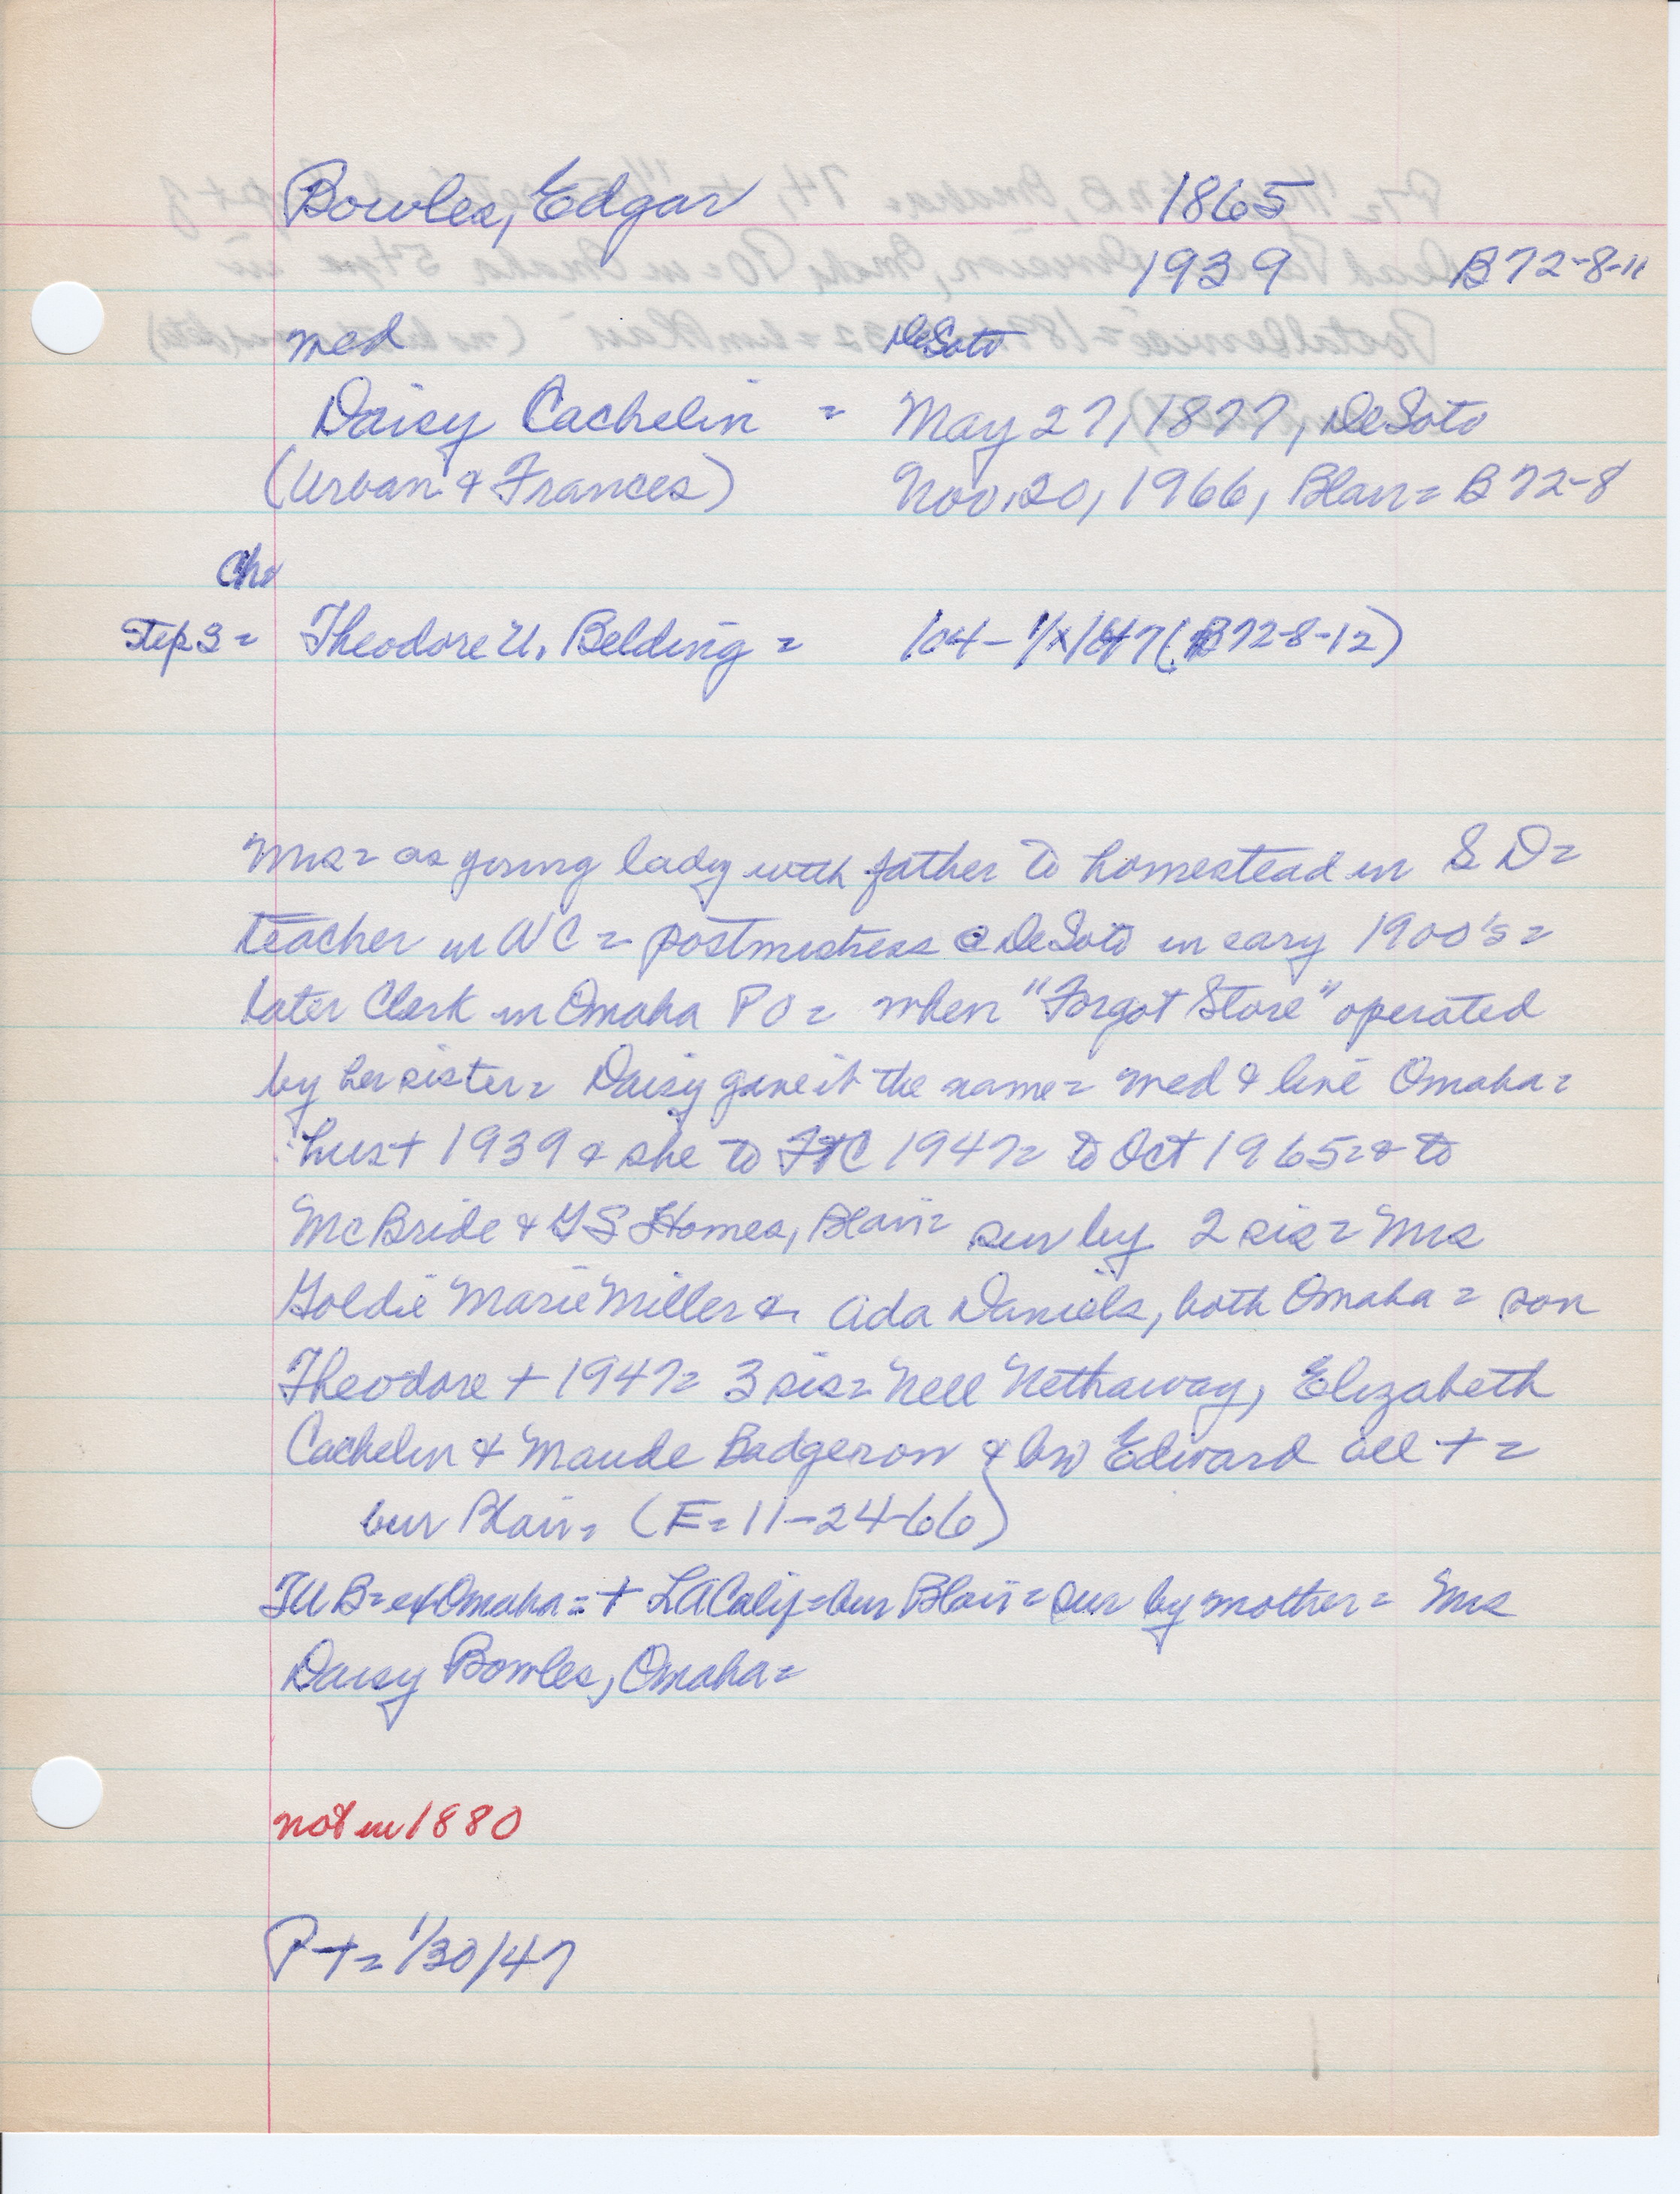 Bowles, Edgar 1865
1939 B72-8-11
med DeSoto
Daisy Cachelin = May 27, 1877, DeSoto
(Urban & Frances) Nov. 20, 1966, Blair = B72-8
Ch=
Step S = Theodore U. Belding = (B72-8-12)
Mrs = as young lady with father to homestead in S D =
teacher in WC = postmistress @ DeSoto in eary 1900's =
later Clerk in Omaha PO = when "Forgot Store" operated
by her sister = Daisy gave it the name = med & live Omaha =
hus + 1939 & she to FtC 1947 = to Oct 1965 = & to
McBride & GS Homes, Blair = sur by 2 sis = Mrs
Goldie Marie Miller & Ada Daniels, both Omaha = son
Theodore + 1947 = 3 sis = Nell Nethaway, Elizabeth
Cachelin & Maude Badgerow & bro Edward all + =
bur Blair = (E = 11-24-66)
TUB = of Omaha = + LA Calif = bur Blair = sur by mother = Mrs
Daisy Bowles, Omaha =
not in 1880
P + = 1/30/47